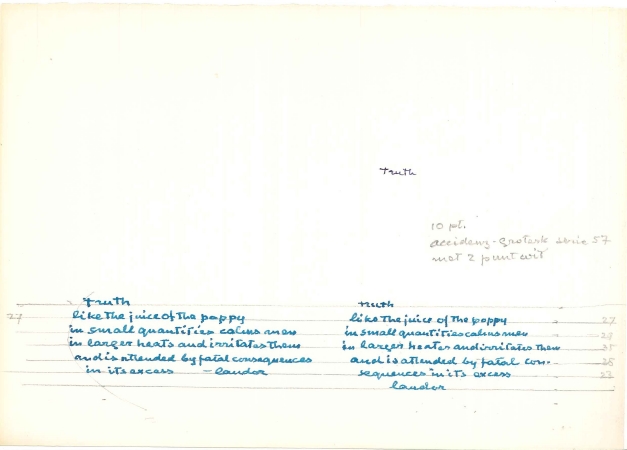 truth
10 pt.
accidenz-grotesk serie 57
met 2 punt wit
truth
27 like the juice of the poppy
in small quantities calms men
in larger heats and irritates them
and is attended by fatal consequences
in its excess — landor
truth
like the juice of the poppy 27
in small quantities calms men
in larger heates and irritates them
and is attended by fatal con-
sequences in its excess 23
landor